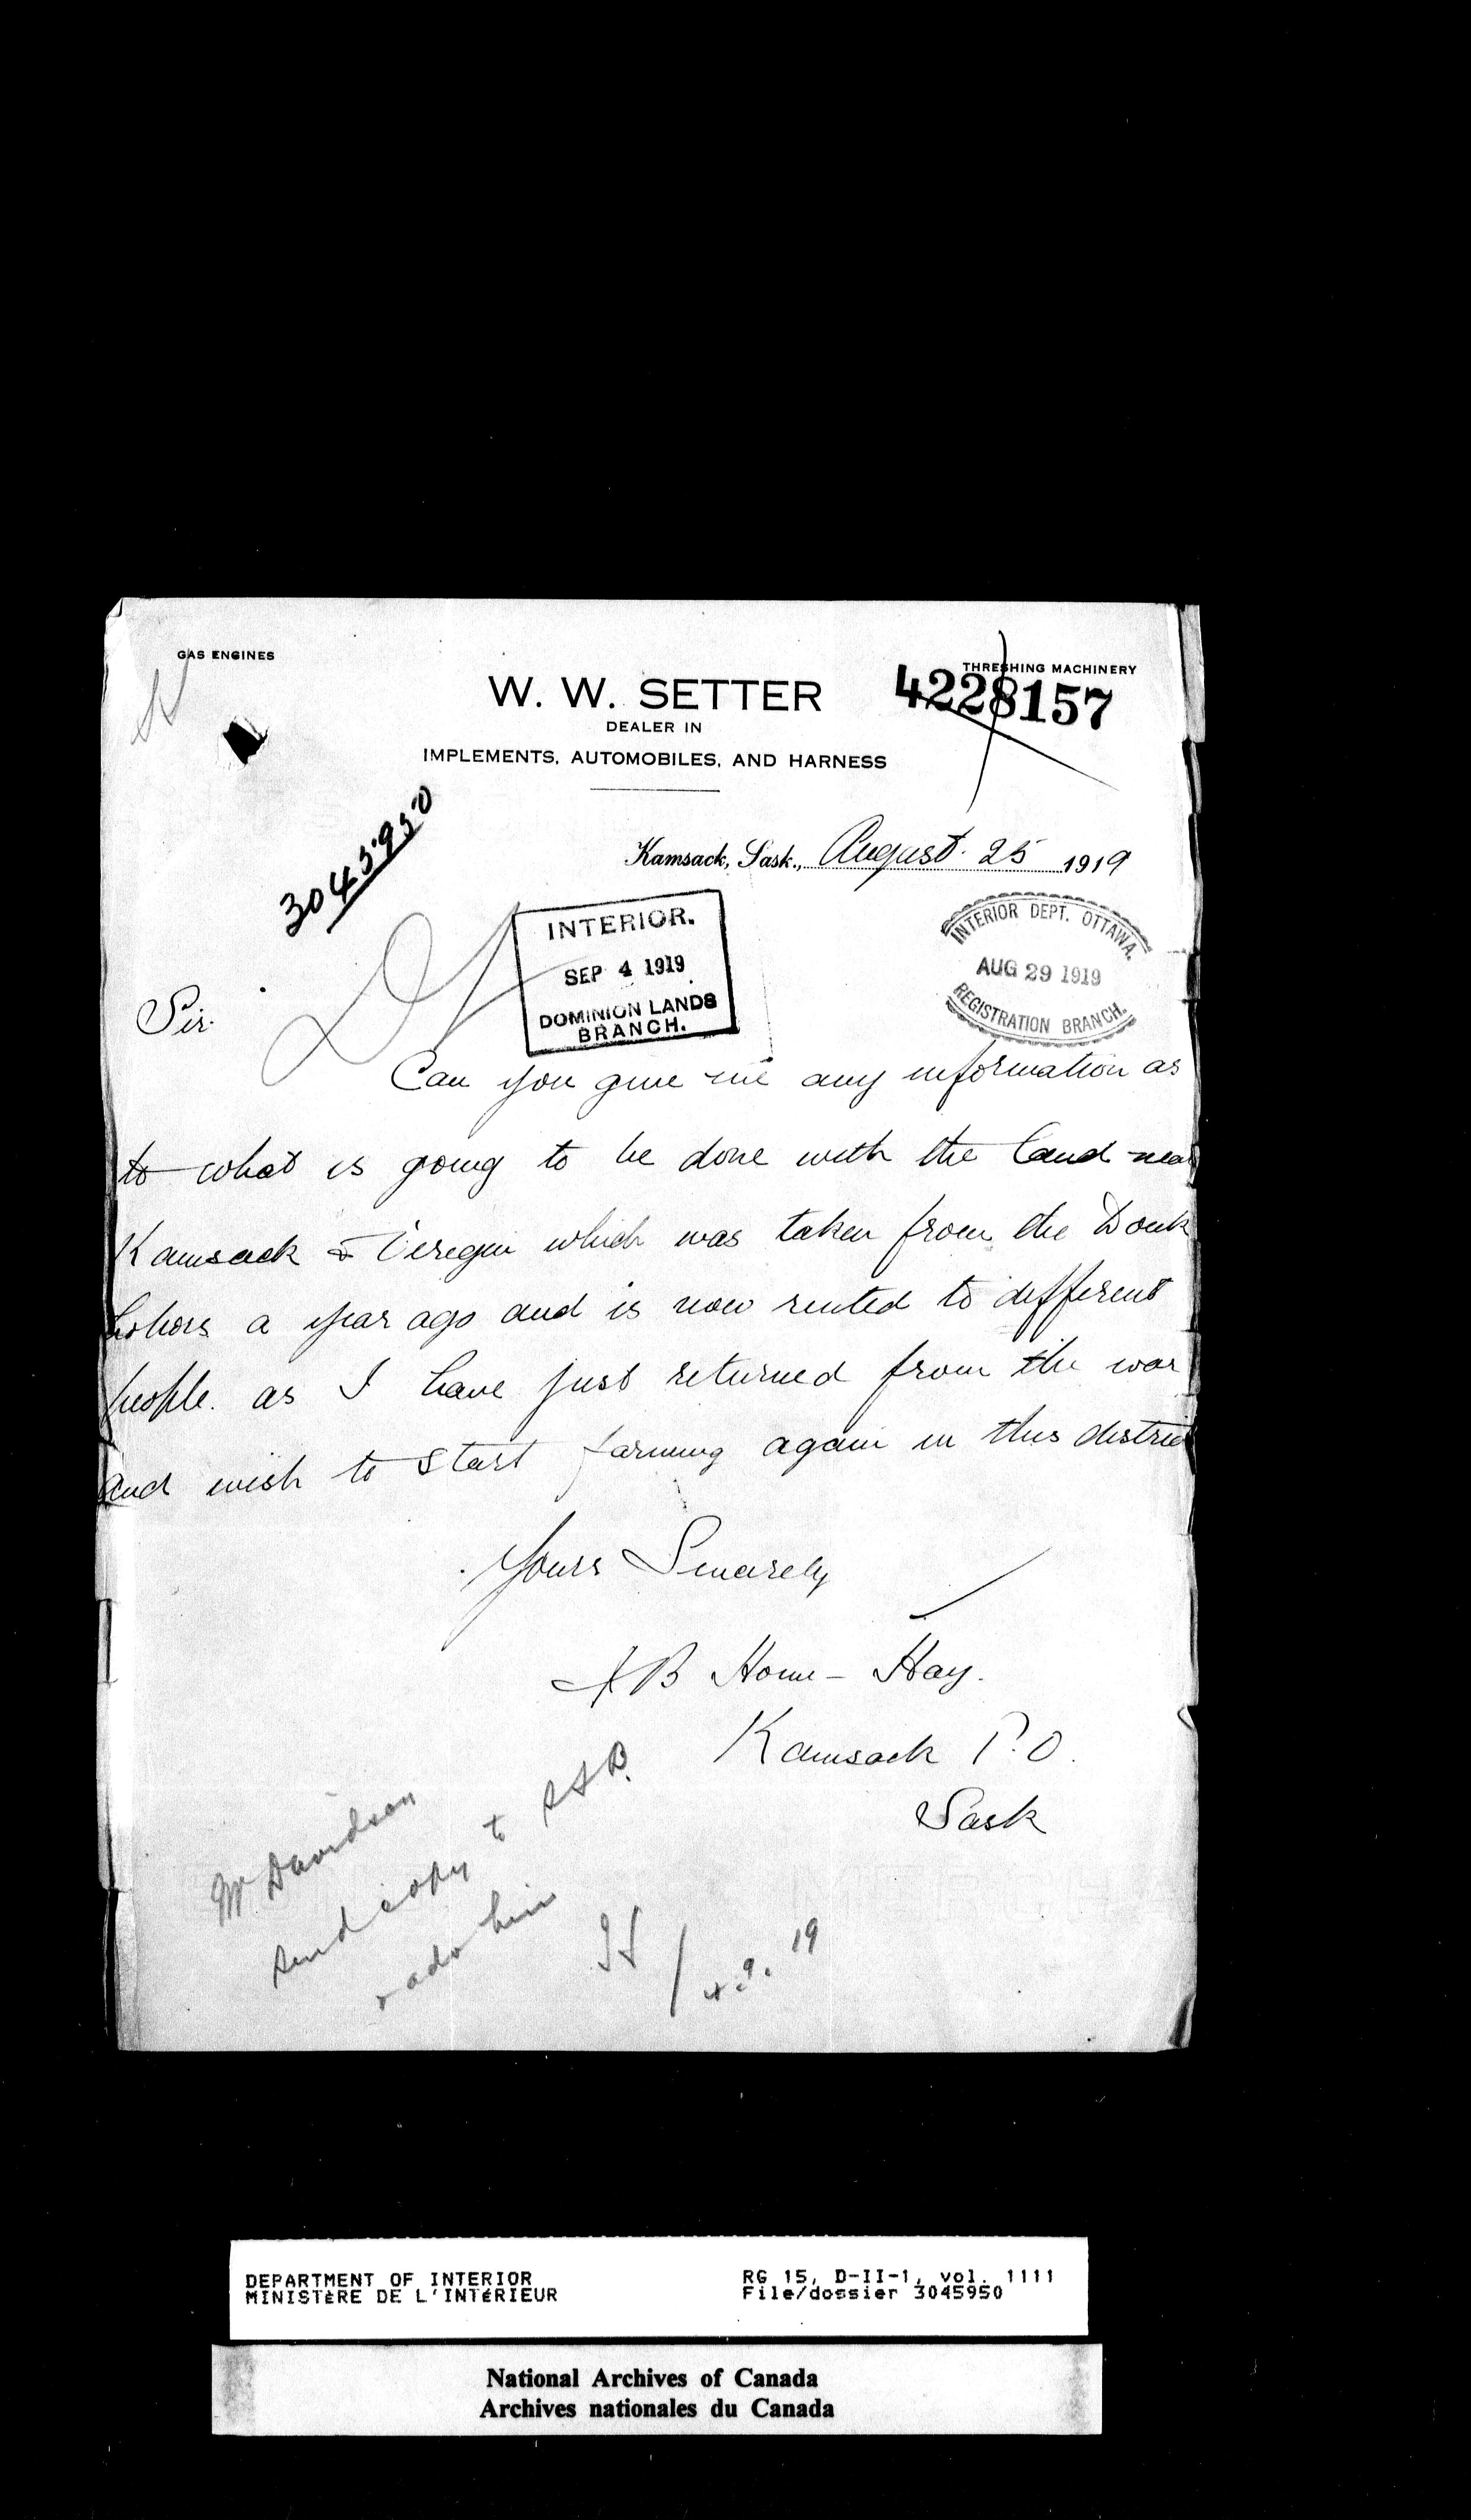 GAS ENGINES
THRESHING MACHINERY
4228157
W. W. SETTER
DEALER IN
IMPLEMENTS, AUTOMOBILES, AND HARNESS
3045950
Kamsack, Sask., August 25 1919
INTERIOR.
SEP 4 1919
DOMINION LANDS
BRANCH.
INTERIOR DEPT. OTTAWA.
AUG 29 1919
REGISTRATION BRANCH.
Sir.
Can you give me any information as
to what is going to be done with the land near
Kamsack & Veregin which was taken from the Douk
hobors a year ago and is now rented to different
people. as I have just returned from the war
and wish to start farming again in this district
Yours Sincerely
B Home-Hay.
Kamsack P.O.
Sask
Mr Davidson
send copy to SSB.
adv him
4.9.19
DEPARTMENT OF INTERIOR
MINISTÈRE DE L'INTÉRIEUR
RG 15, D-II-1, vol. 1111
File/dossier 3045950
National Archives of Canada
Archives nationales du Canada